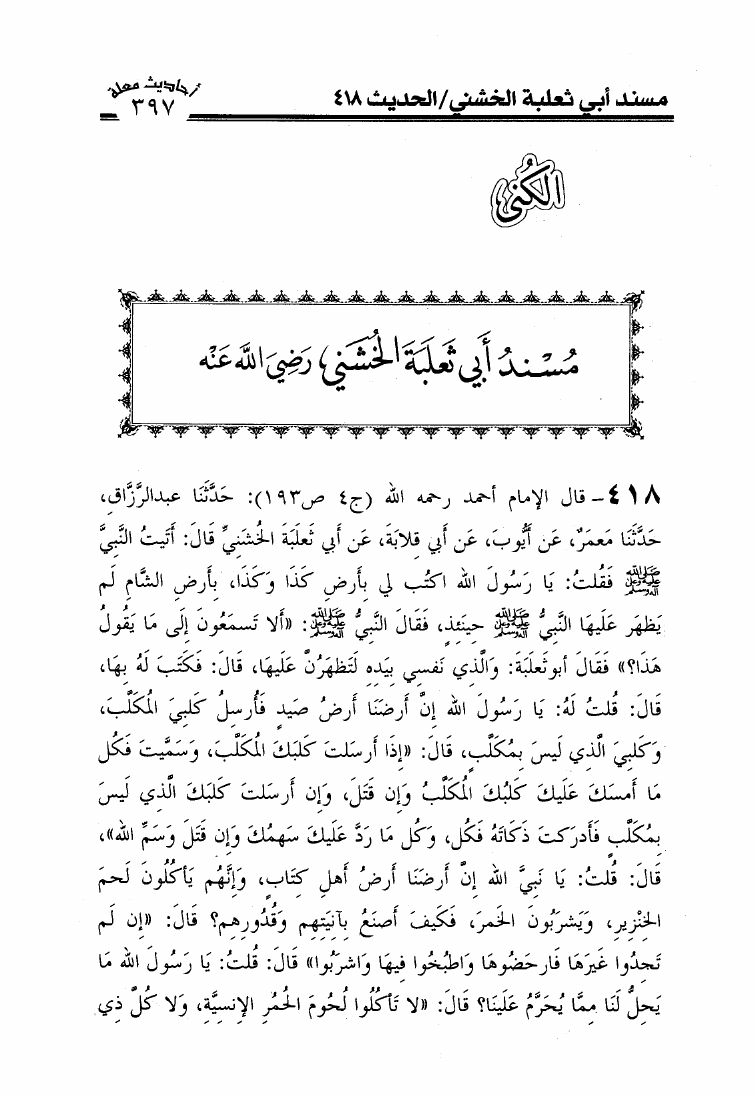 مسند أبي ثعلبة الخشني/الحديث ٤١٨
أحاديث معلة
٣٩٧
الكُنى
مُسْنَدُ أَبِي ثَعلَبَةَ الخُشَنِيِّ رَضِيَ اللَّهُ عَنْهُ
٤١٨- قال الإمام أحمد رحمه الله (ج٤ ص١٩٣): حَدَّثَنَا عبدالرَّزَّاق،
حَدَّثَنَا مَعمَرٌ، عَن أَيُّوبَ، عَن أبي قِلابَةَ، عَن أبي ثَعلَبَةَ الخُشَنيِّ قَالَ: أَتَيتُ النَّبيَّ
ﷺ فَقُلتُ: يَا رَسُولَ الله اكتُب لي بأَرضِ كَذَا وَكَذَا، بأَرضِ الشَّامِ لَم
يَظهَر عَلَيهَا النَّبيُّ ﷺ حِينَئِذٍ، فَقَالَ النَّبيُّ ﷺ: «أَلا تَسمَعُونَ إلَى مَا يَقُولُ
هَذَا؟» فَقَالَ أبوثَعلَبَةَ: وَالَّذي نَفسي بيَده لَتَظهَرُنَّ عَلَيهَا، قَالَ: فَكَتَبَ لَهُ بهَا،
قَالَ: قُلتُ لَهُ: يَا رَسُولَ الله إنَّ أَرضَنَا أَرضُ صَيدٍ فَأُرسِلُ كَلبيَ المُكَلَّبَ،
وَكَلبيَ الَّذي لَيسَ بمُكَلَّبٍ، قَالَ: «إذَا أَرسَلتَ كَلبَكَ المُكَلَّبَ، وَسَمَّيتَ فَكُل
مَا أَمسَكَ عَلَيكَ كَلبُكَ المُكَلَّبُ وَإن قَتَلَ، وَإن أَرسَلتَ كَلبَكَ الَّذي لَيسَ
بمُكَلَّبٍ فَأَدرَكتَ ذَكَاتَهُ فَكُل، وَكُل مَا رَدَّ عَلَيكَ سَهمُكَ وَإن قَتَلَ وَسَمِّ الله»،
قَالَ: قُلتُ: يَا نَبيَّ الله إنَّ أَرضَنَا أَرضُ أَهلِ كتَابٍ، وَإنَّهُم يَأكُلُونَ لَحمَ
الخِنْزيرِ، وَيَشرَبُونَ الخَمرَ، فَكَيفَ أَصنَعُ بآنيَتِهِم وَقُدُورِهِم؟ قَالَ: «إن لَم
تَجدُوا غَيرَهَا فَارحَضُوهَا وَاطبُخُوا فيهَا وَاشرَبُوا» قَالَ: قُلتُ: يَا رَسُولَ الله مَا
يَحِلُّ لَنَا مِمَّا يُحَرَّمُ عَلَينَا؟ قَالَ: «لا تَأكُلُوا لُحُومَ الحُمُرِ الإنسيَّةِ، وَلا كُلَّ ذي